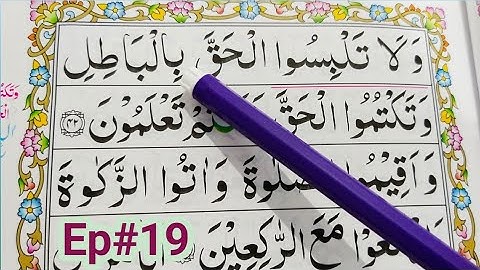 وَلَا تَلْبِسُوا الْحَقَّ بِالْبَاطِلِ
وَتَكْتُمُوا الْحَقَّ تَعْلَمُوْنَ ﴿۴۲﴾
وَاَقِيْمُوا الصَّلٰوةَ وَاٰتُوا الزَّكٰوةَ
مَعَ الرّٰكِعِيْنَ
Ep#19